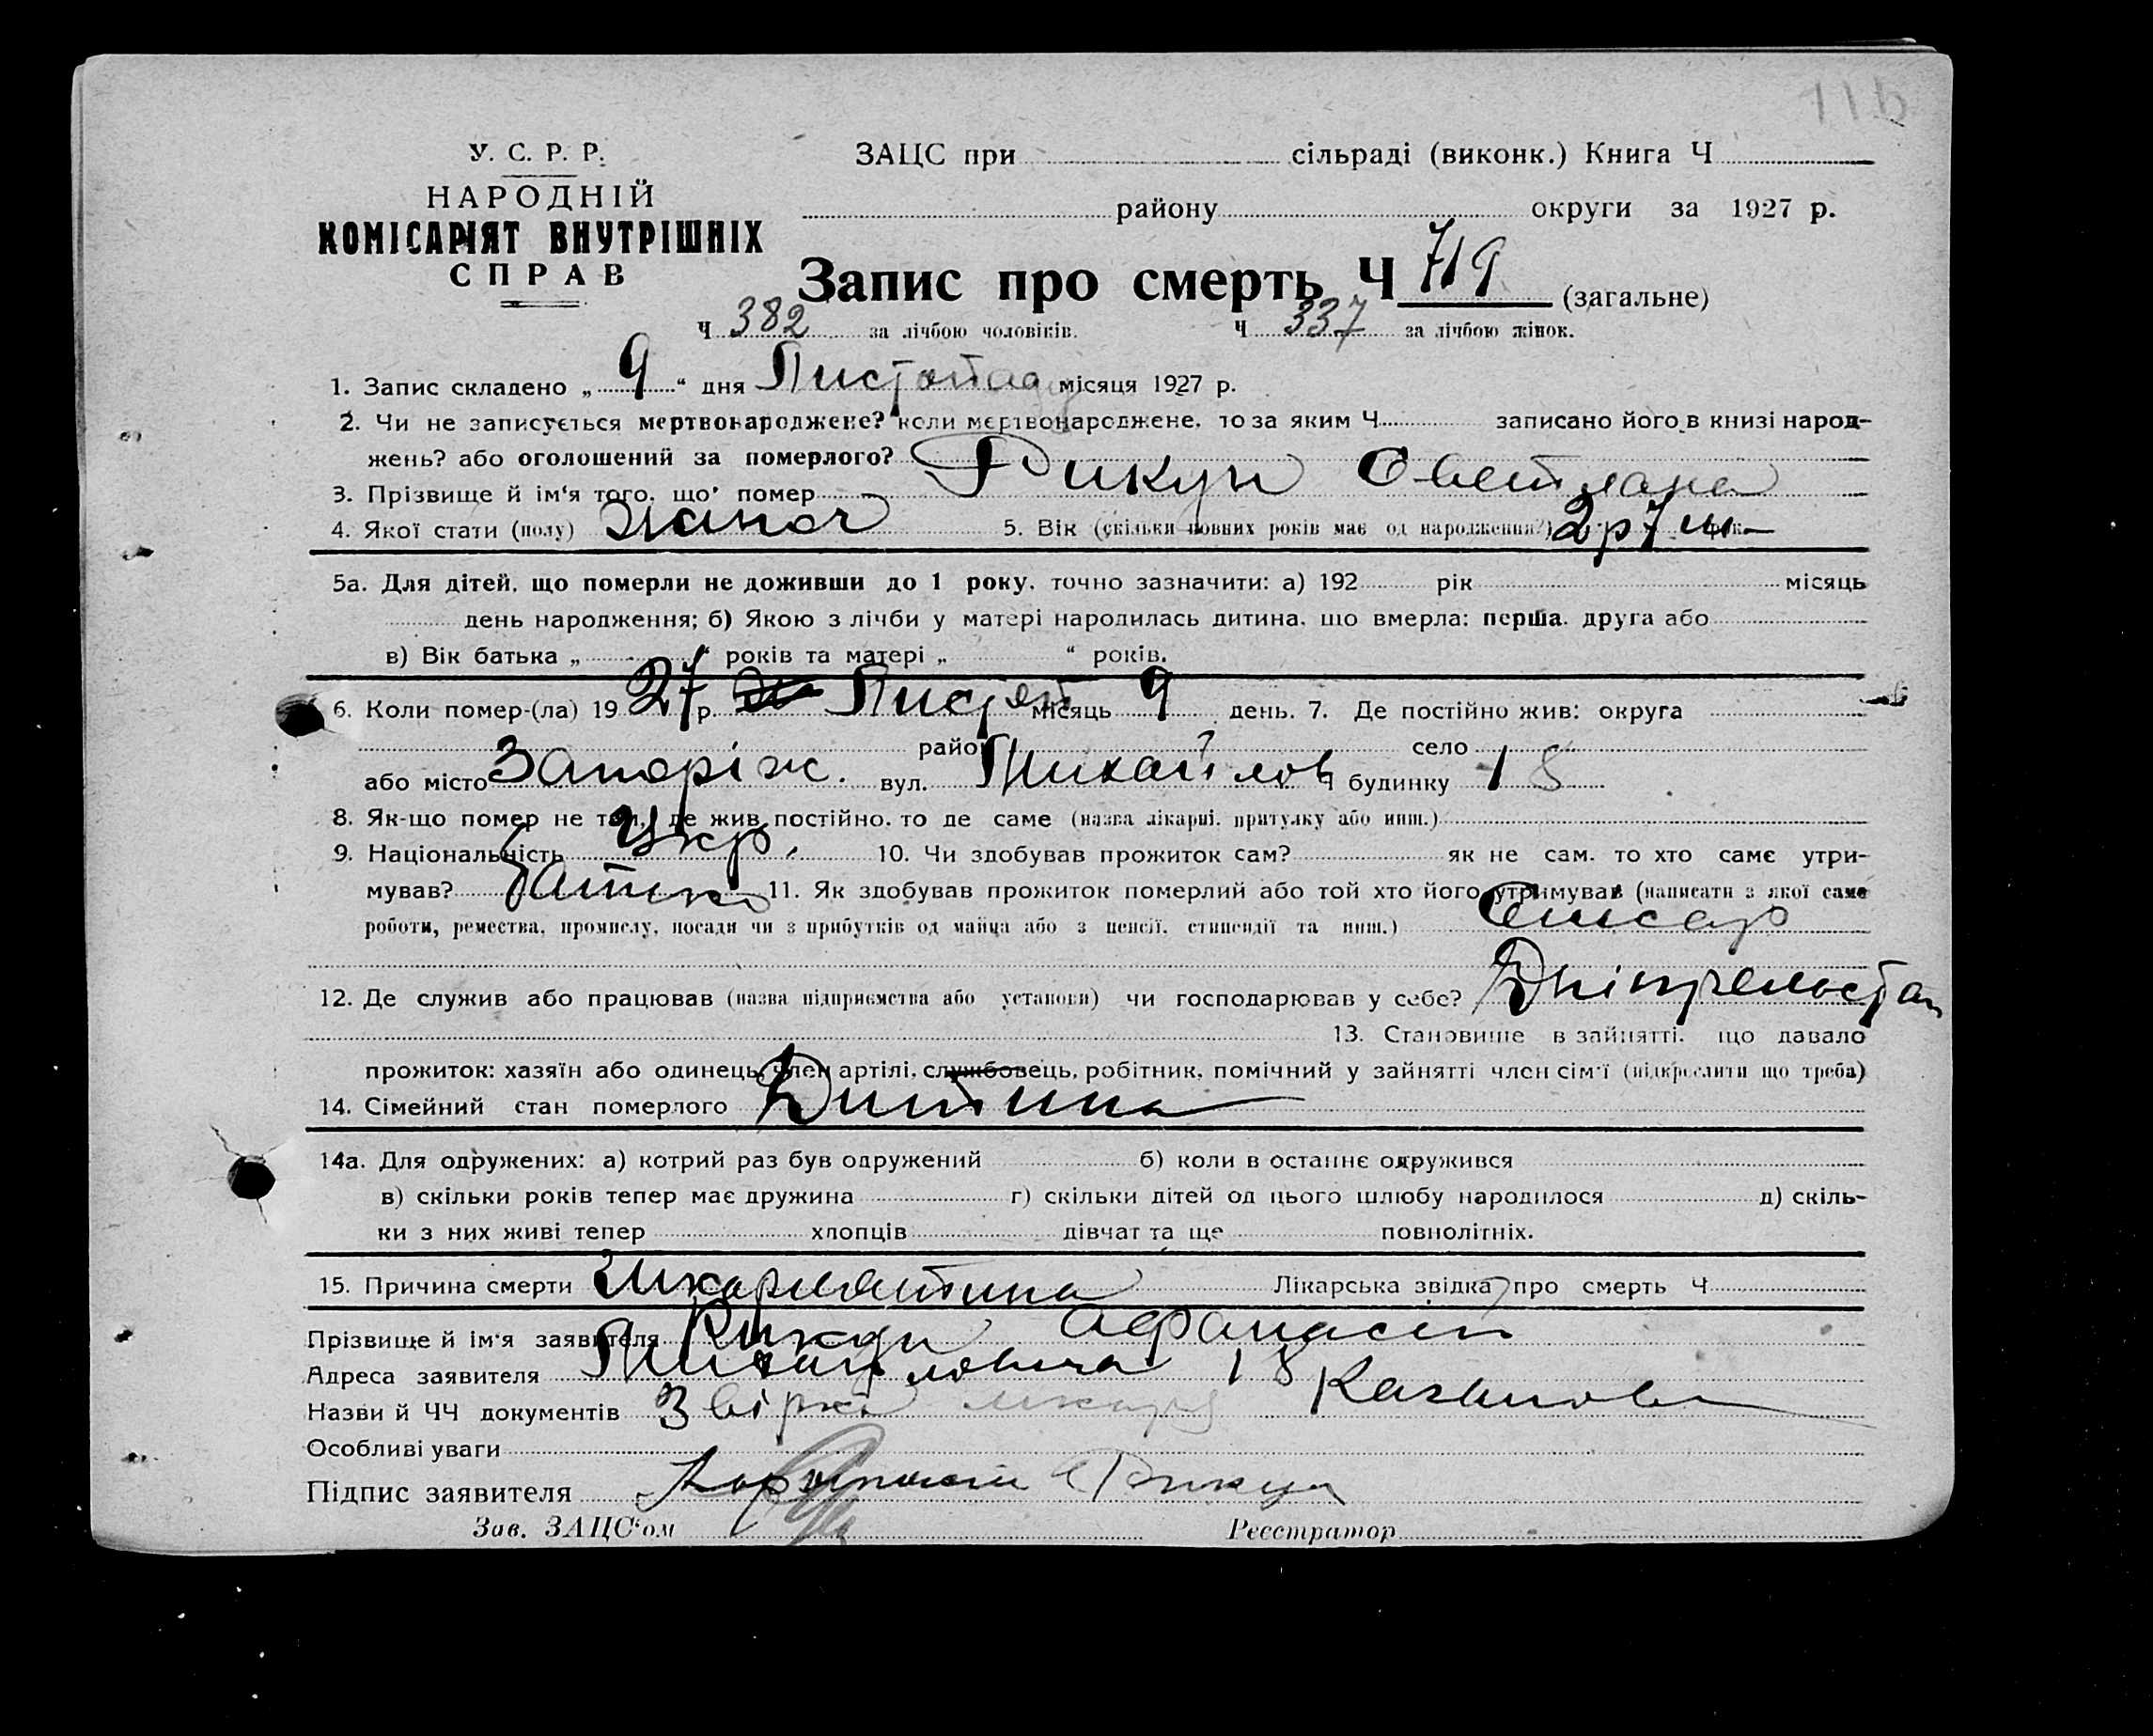 У. С. Р. Р.
НАРОДНІЙ
КОМІСАРІЯТ ВНУТРІШНІХ
СПРАВ
ЗАЦС при сільраді (виконк.) Книга Ч
району округи за 1927 р.
Запис про смерть Ч 719 (загальне)
Ч 382 за лічбою чоловіків. Ч 337 за лічбою жінок.
1. Запис складено „ 9 “ дня Листопаду місяця 1927 р.
2. Чи не записується мертвонароджене? коли мертвонароджене, то за яким Ч записано його в книзі народ-
жень? або оголошений за померлого?
3. Прізвище й ім'я того, що помер Рикун Светлана
4. Якої стати (полу) 5. Вік (скільки повних років має од народження?) 2 р 7 м
5а. Для дітей, що померли не доживши до 1 року, точно зазначити: а) 192 рік місяць
день народження; б) Якою з лічби у матері народилась дитина, що вмерла: перша, друга або
в) Вік батька „ “ років та матері „ “ років.
6. Коли помер-(ла) 19 27 р. Листоп місяць 9 день. 7. Де постійно жив: округа
район село
або місто Запоріж. вул. Михайлов Ч будинку 18
8. Як-що помер не там, де жив постійно, то де саме (назва лікарні, притулку або инш.)
9. Національність Укр. 10. Чи здобував прожиток сам? як не сам, то хто саме утри-
мував? Батько 11. Як здобував прожиток померлий або той хто його утримував (написати з якої саме
роботи, ремества, промислу, посади чи з прибутків од майна або з пенсії, стипендії та инш.)
12. Де служив або працював (назва підприємства або установи) чи господарював у себе? Дніпрельстан
13. Становище в зайнятті, що давало
прожиток: хазяїн або одинець, член артілі, службовець, робітник, помічний у зайнятті член сім'ї (підкреслити що треба)
14. Сімейний стан померлого Дитина
14а. Для одружених: а) котрий раз був одружений б) коли в останнє одружився
в) скільки років тепер має дружина г) скільки дітей од цього шлюбу народилося д) скіль-
ки з них живі тепер хлопців дівчат та ще повнолітніх.
15. Причина смерти Шкарлятина Лікарська звідка про смерть Ч
Прізвище й ім'я заявителя Рикун Афанасій
Адреса заявителя 18
Назви й ЧЧ документів
Особливі уваги
Підпис заявителя Рикун
Зав. ЗАЦС'ом Реєстратор